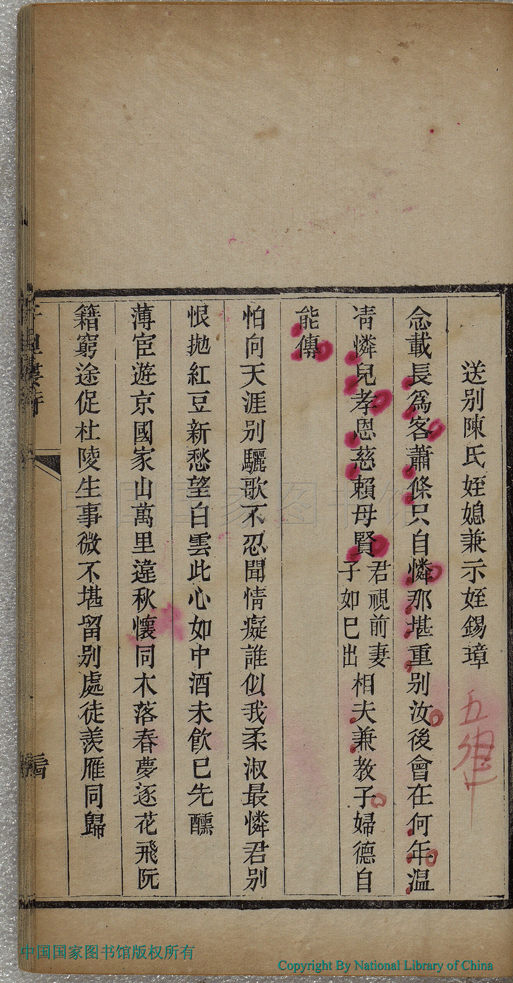 送别陳氏姪媳兼示姪錫璋
五律
念載長爲客蕭條只自憐那堪重别汝後會在何年温
凊憐兒孝恩慈賴母賢君視前妻子如已出相夫兼教子婦德自
能傳
怕向天涯别驪歌不忍聞情癡誰似我柔淑最憐君别
恨拋紅豆新愁望白雲此心如中酒未飮已先醺
薄宦遊京國家山萬里違秋懷同木落春夢逐花飛阮
籍窮途促杜陵生事微不堪留别處徒羨雁同歸
中国国家图书馆版权所有
Copyright By National Library of China